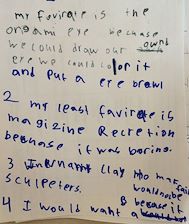 my favirate is the
origami eye because
we could draw our own
eye we could color it
and put a eye brawl
2 my least favirate is
magizine Recretion
because it was boring.
3 clay
sculpeters. because it
4 I would want a